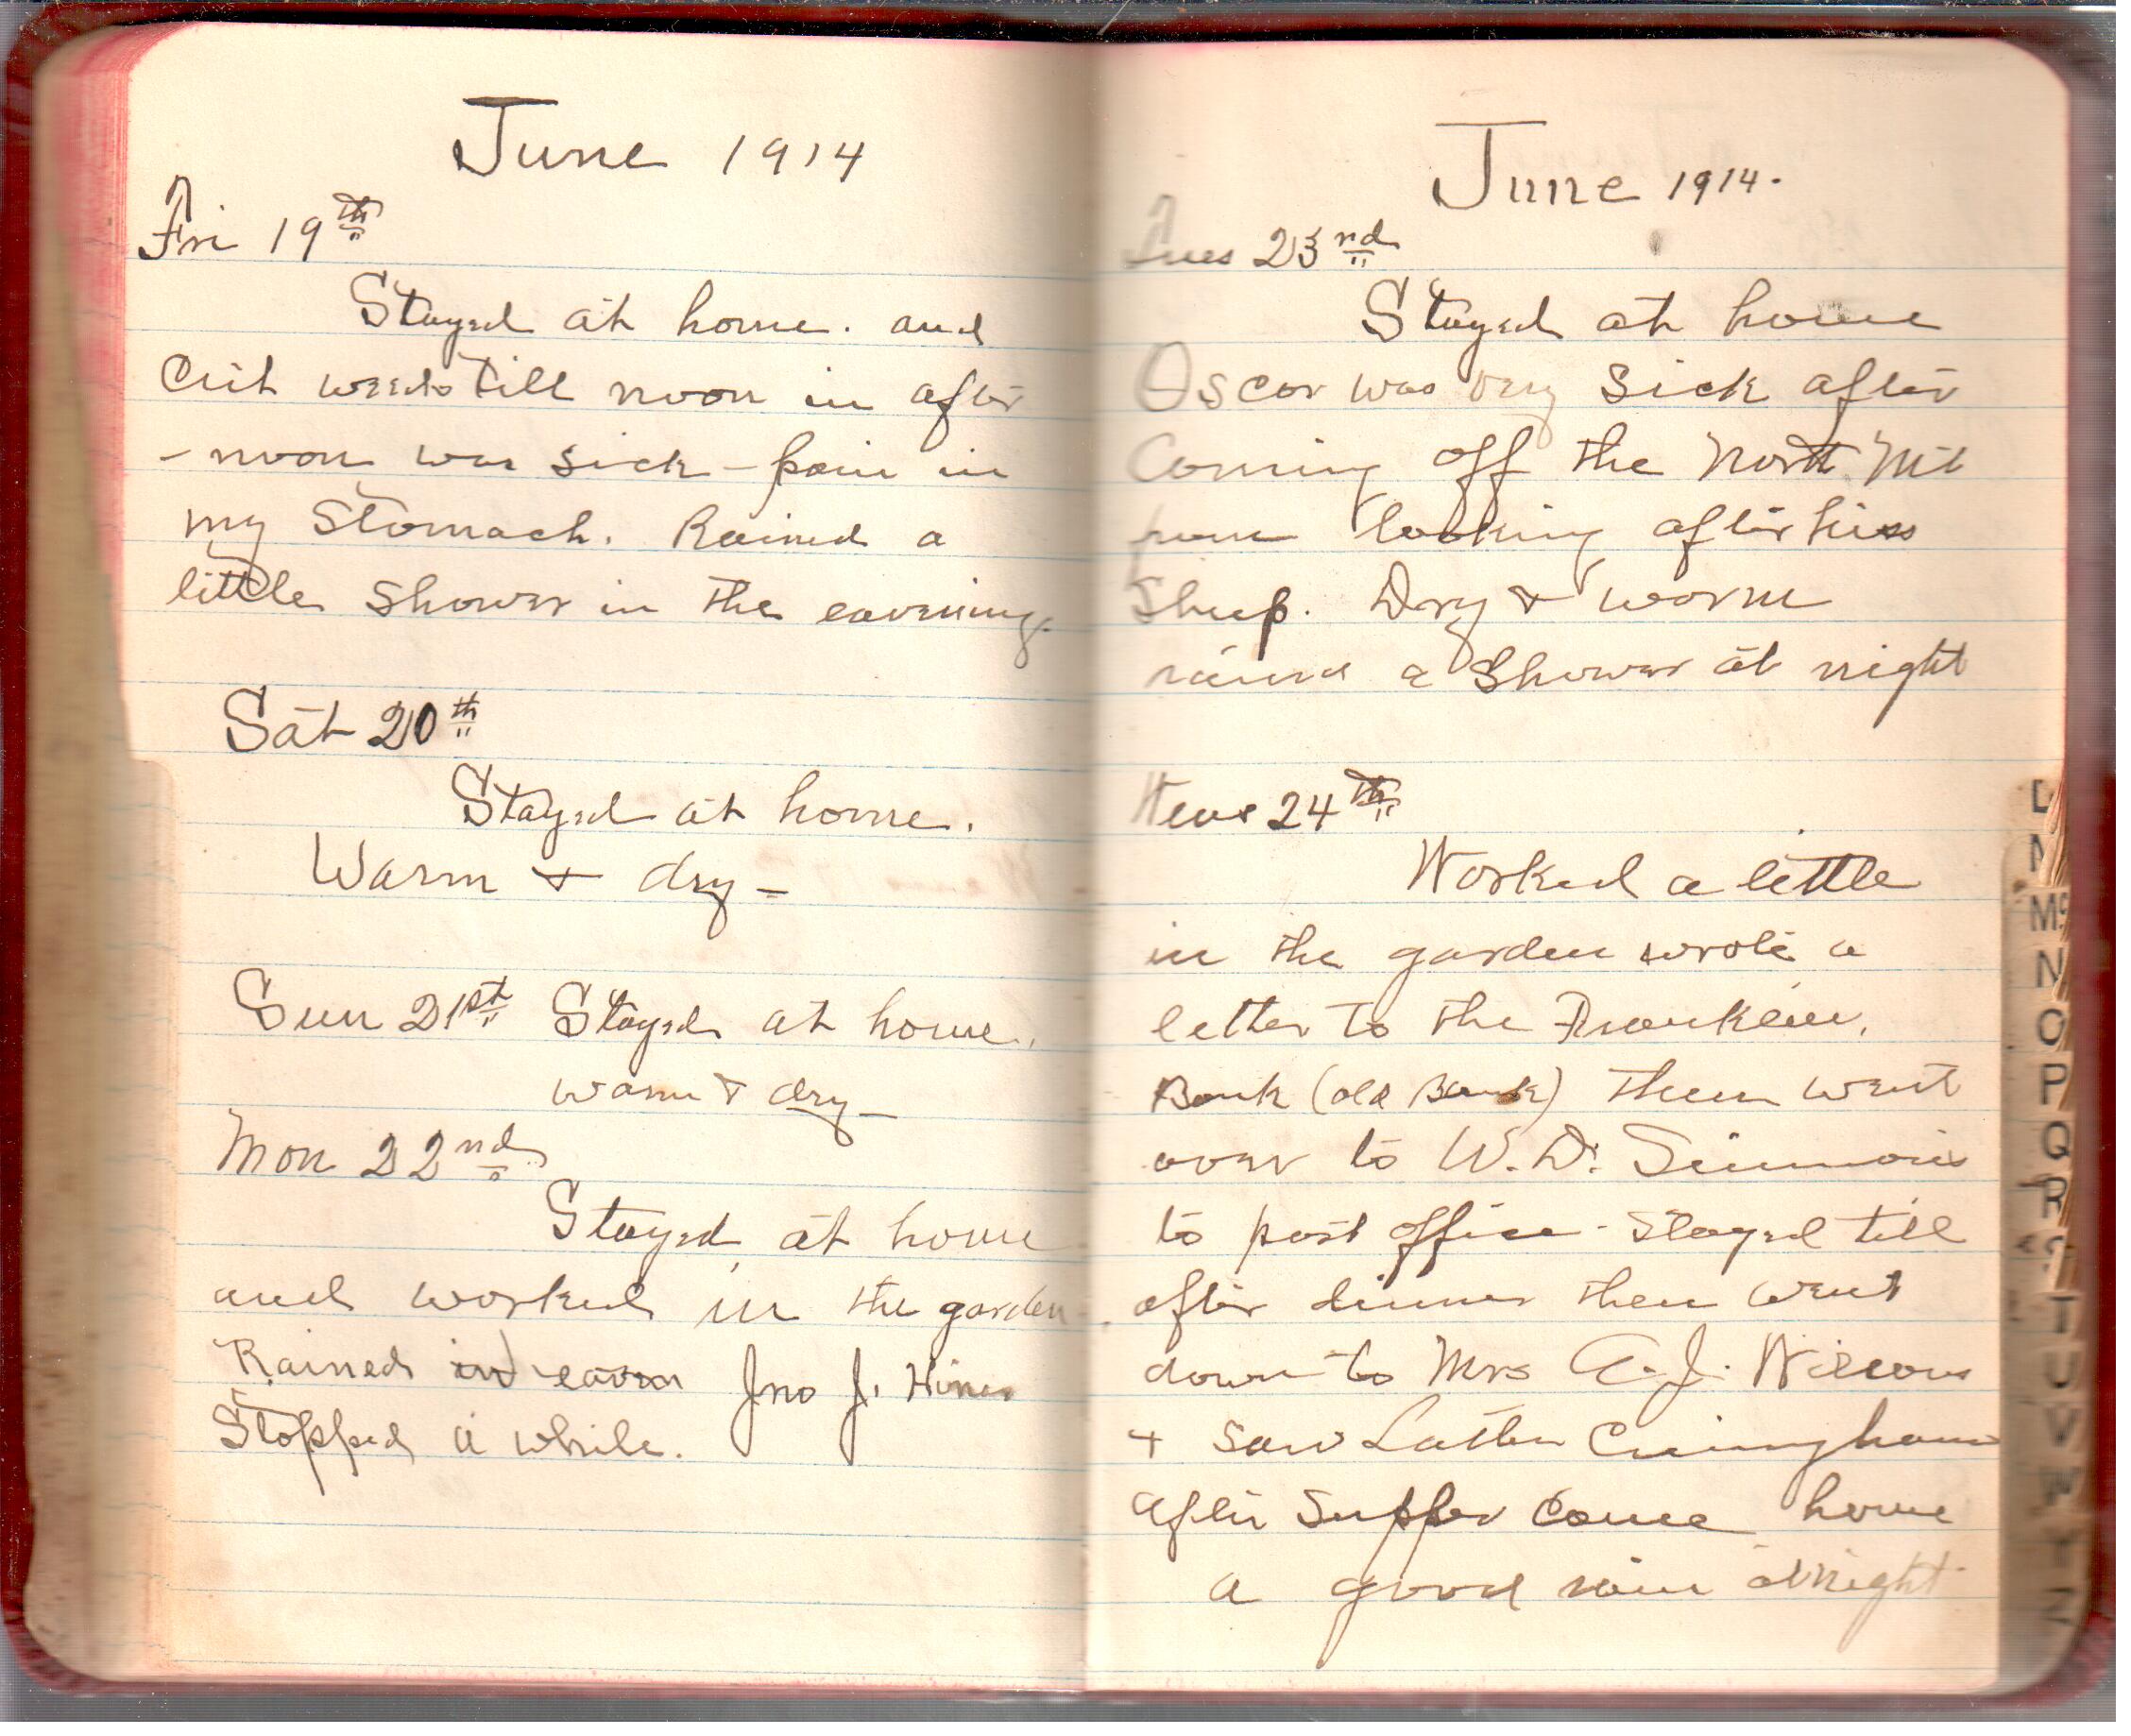 June 1914
Fri 19th
Stayed at home. and
Cut weeds till noon in after
-noon was sick - pain in
my Stomach. Rained a
little shower in the eavening.
Sat 20th
Stayed at home.
Warm + dry -
Sun 21st Stayed at home.
warm + dry -
Mon 22nd
Stayed at home
and worked in the garden
Rained in eaven Jno J. Hiner
Stopped a while.
June 1914.
Tues 23rd
Stayed at home
Oscar was very sick after
Coming off the North Mt
from looking after his
Sheep. Dry + warm
rained a Shower at night
Wens 24th
Worked a little
in the garden wrote a
letter to the Franklin.
Bank (old Bank) then went
over to W. D. Simmons
to post office - Stayed till
after dinner then went
down to Mrs A. J. Wilsons
+ saw Luther Cuningham
After Supper Come home
a good rain at night
D
M
Mc
N
O
P
Q
R
S
T
U
V
W
Y
Z